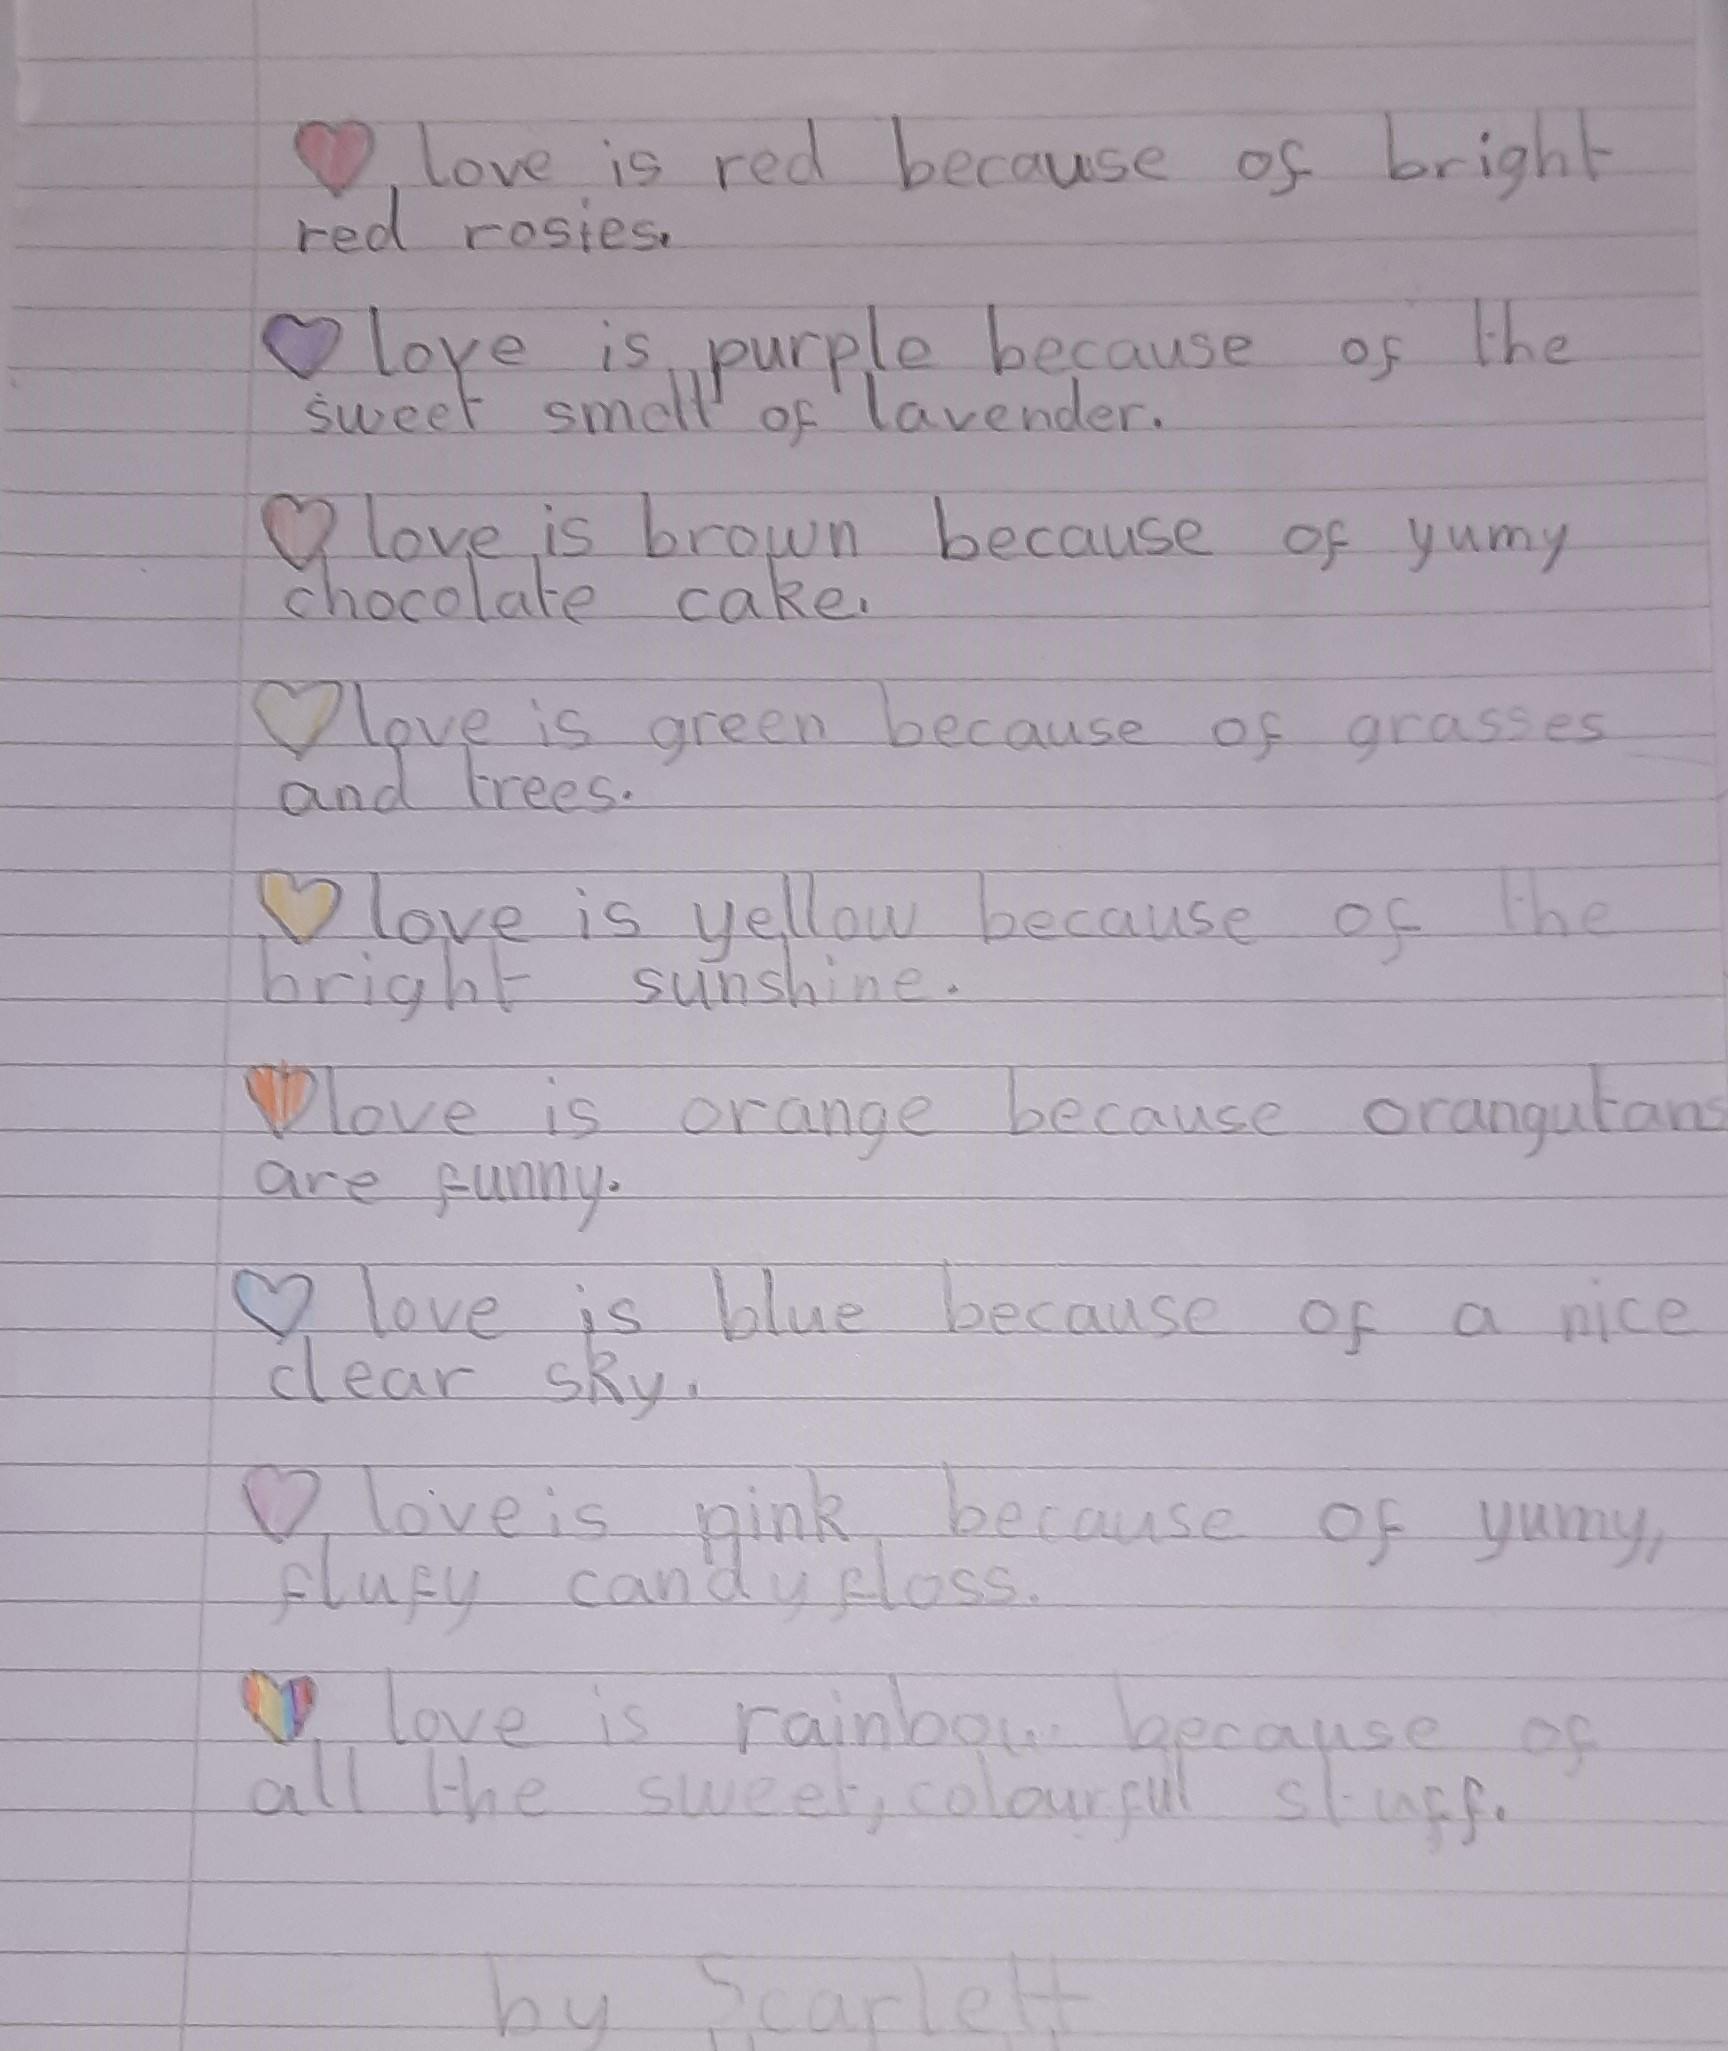 love is red because of bright
red rosies.
love is purple because of the
sweet smell of lavender.
love is brown because of yumy
chocolate cake.
love is green because of grasses
and trees.
love is yellow because of the
bright sunshine.
love is orange because orangutans
are funny.
love is blue because of a nice
clear sky.
love is pink because of yumy,
flufy candyfloss.
love is rainbow because of
all the sweet, colourful stuff.
by Scarlett